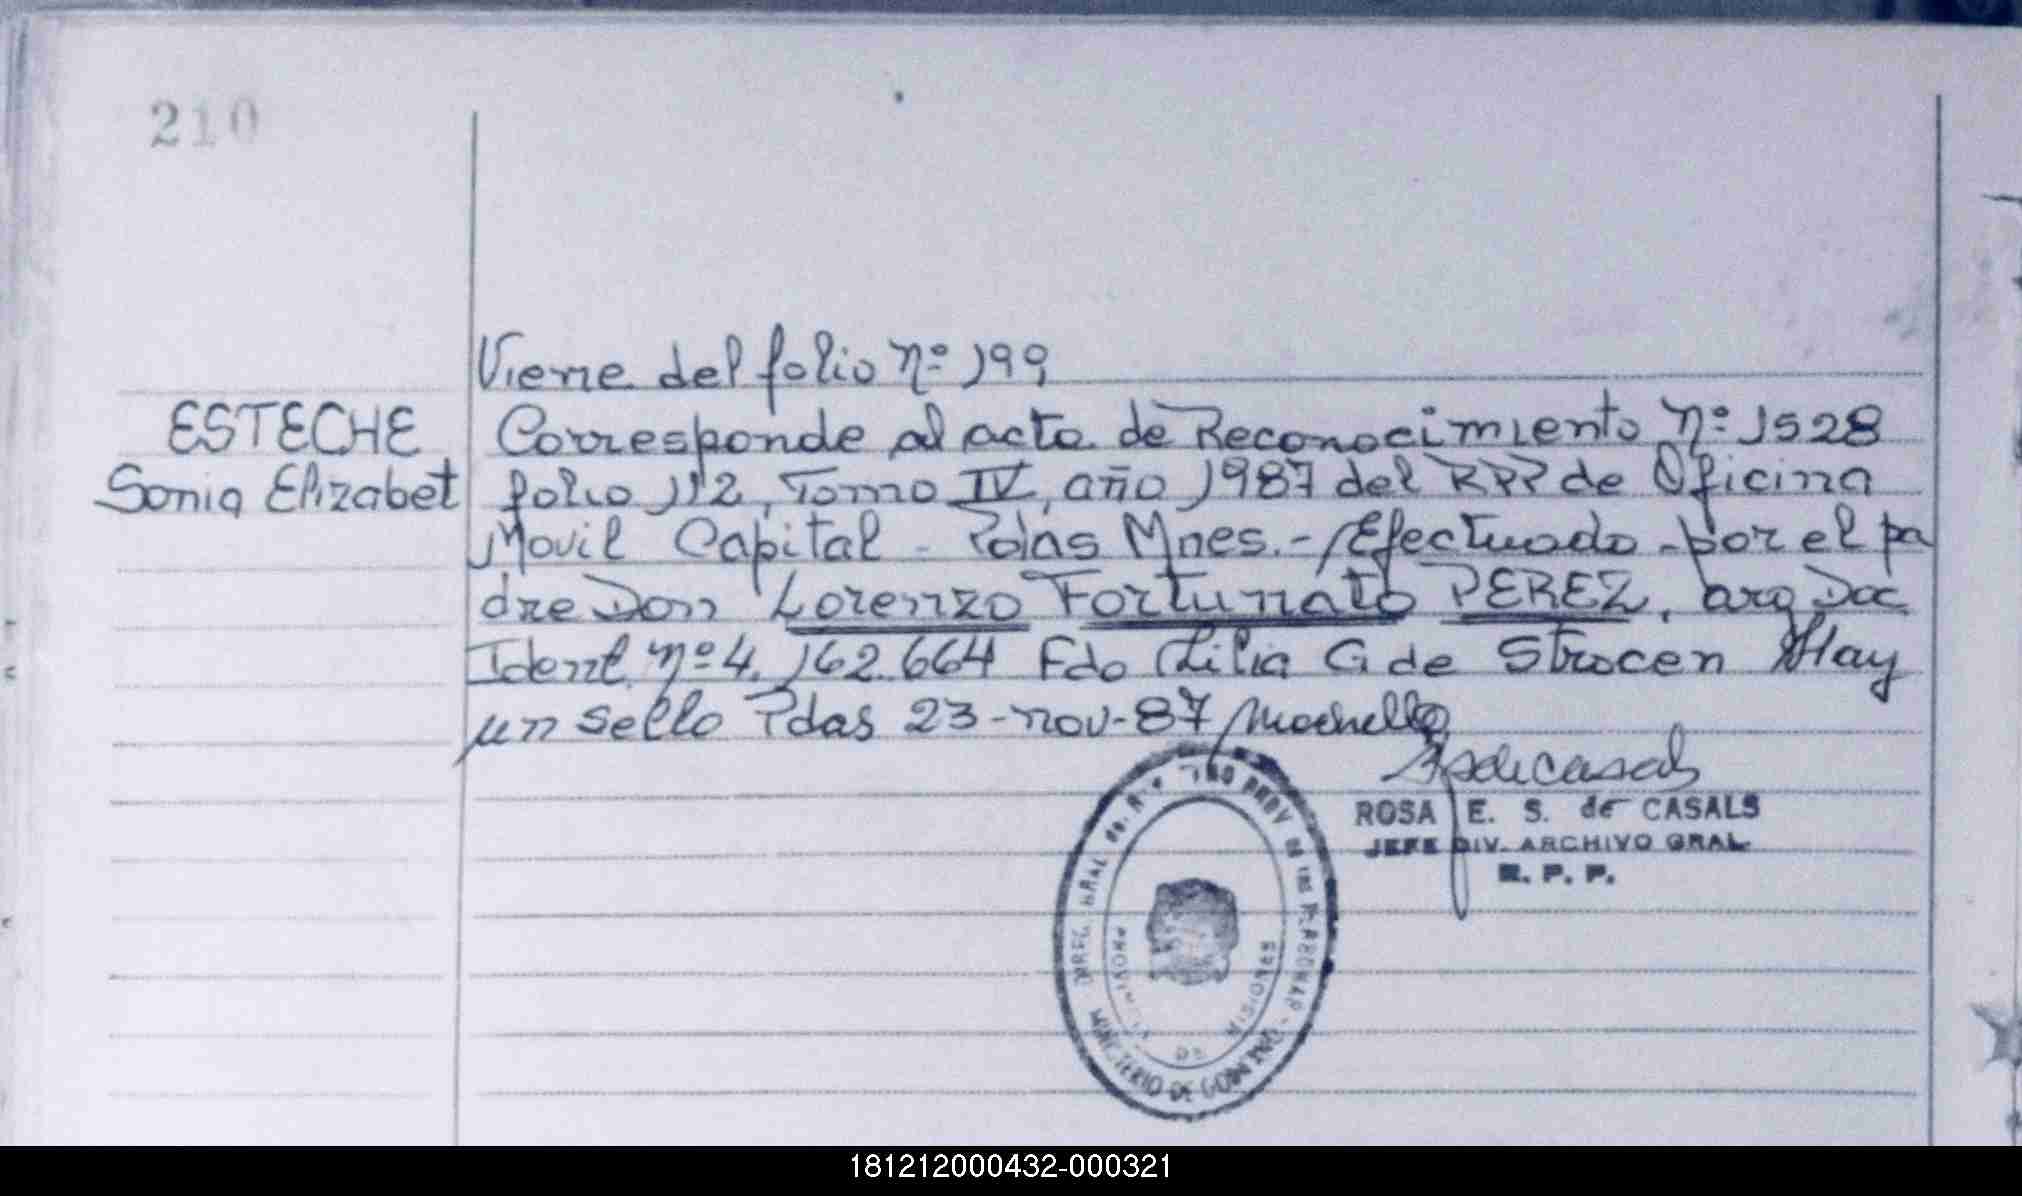 210
Viene del folio Nº 199
ESTECHE
Sonia Elizabet
Corresponde al acta de Reconocimiento Nº 1528
folio 112, Tomo IV, año 1987 del RPP de Oficina
Movil Capital - Pdas Mnes.- Efectuado por el pa
dre Don Lorenzo Fortunato PEREZ, arg Doc
Ident. Nº 4.162.664 Fdo Lilia G de Strocen Hay
un sello Pdas 23-nov-87
ROSA E. S. de CASALS
JEFE DIV. ARCHIVO GRAL
R. P. P.
PROV DE LAS PERSONAS - MINISTERIO DE GOBIERNO
PROVINCIA DE MISIONES
181212000432-000321